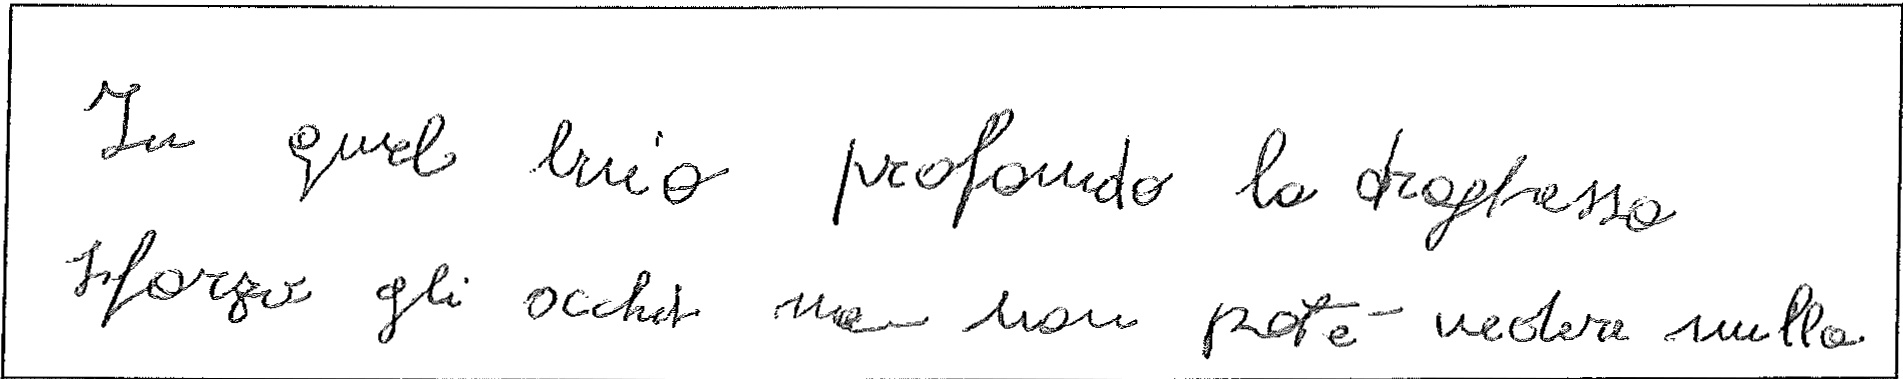 In quel buio profondo la draghessa
sforzo gli occhi ma non poté vedere nulla